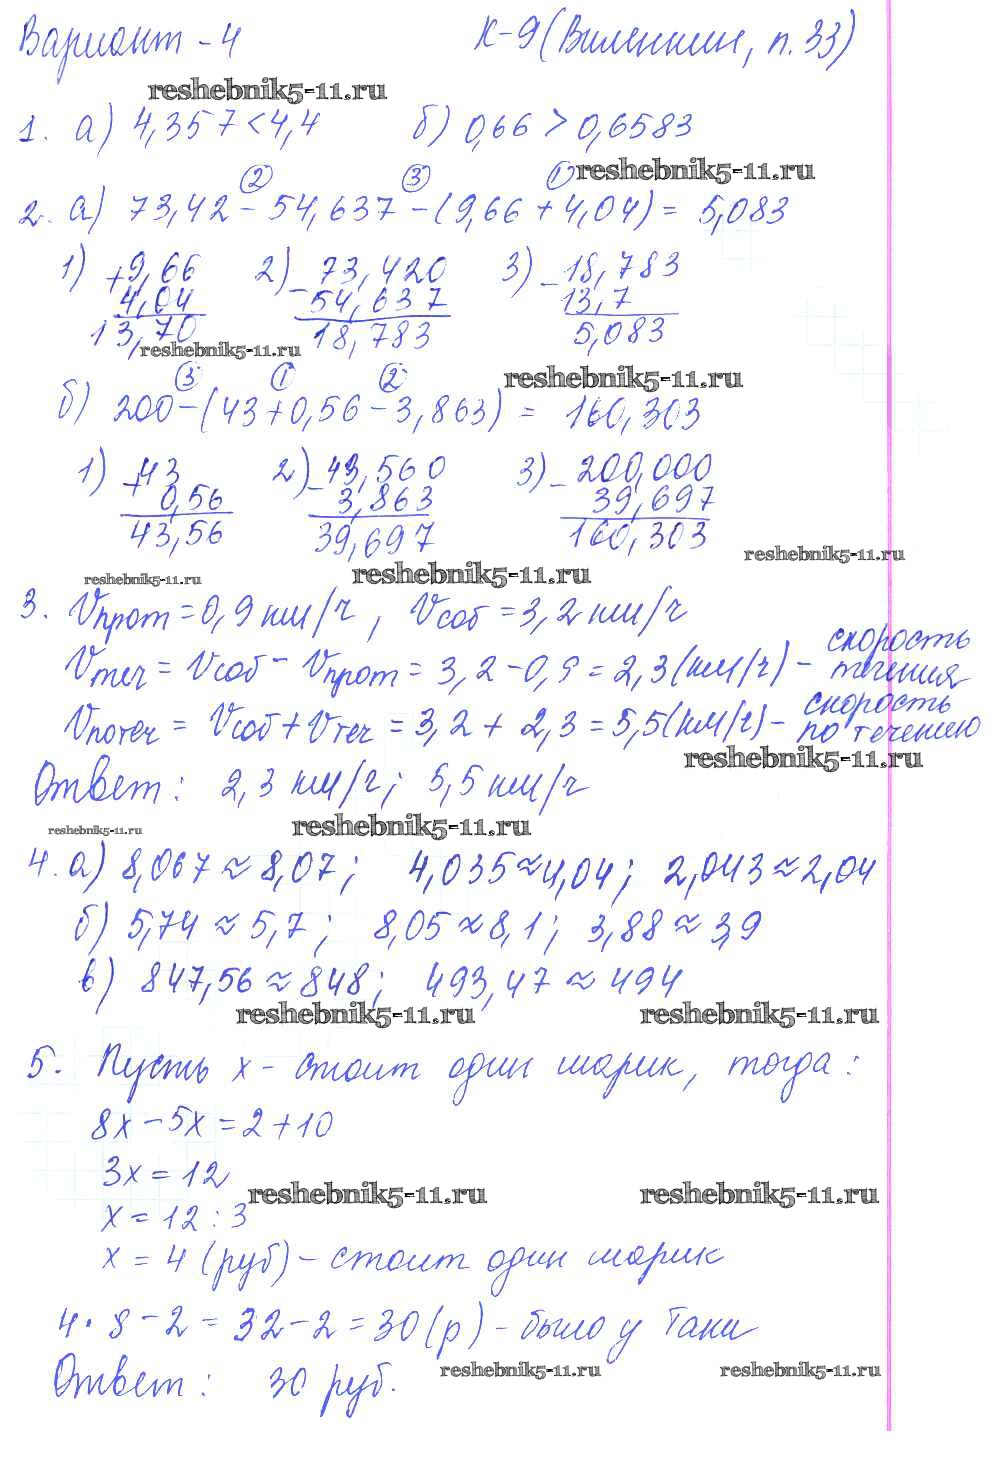 Вариант - 4 К-9 (Виленкин, п. 33)
reshebnik5-11.ru
1. а) 4,357 < 4,4 б) 0,66 > 0,6583
reshebnik5-11.ru
② ③ ①
2. а) 73,42 - 54,637 - (9,66 + 4,04) = 5,083
1) + 9,66 2) - 73,420 3) - 18,783
4,04 54,637 13,7
13,70 18,783 5,083
reshebnik5-11.ru
reshebnik5-11.ru
③ ① ②
б) 200 - (43 + 0,56 - 3,863) = 160,303
1) + 43 2) - 43,560 3) - 200,000
0,56 3,863 39,697
43,56 39,697 160,303
reshebnik5-11.ru
reshebnik5-11.ru
reshebnik5-11.ru
3. Vпрот = 0,9 км/ч, Vсоб = 3,2 км/ч
Vтеч = Vсоб - Vпрот = 3,2 - 0,9 = 2,3 (км/ч) - скорость течения
Vпотеч = Vсоб + Vтеч = 3,2 + 2,3 = 5,5 (км/ч) - скорость по течению
reshebnik5-11.ru
Ответ: 2,3 км/ч; 5,5 км/ч
reshebnik5-11.ru
reshebnik5-11.ru
4. а) 8,067 ≈ 8,07; 4,035 ≈ 4,04; 2,043 ≈ 2,04
б) 5,74 ≈ 5,7; 8,05 ≈ 8,1; 3,88 ≈ 3,9
в) 847,56 ≈ 848; 493,47 ≈ 494
reshebnik5-11.ru reshebnik5-11.ru
5. Пусть х - стоит один шарик, тогда:
8х - 5х = 2 + 10
3х = 12
reshebnik5-11.ru reshebnik5-11.ru
х = 12 : 3
х = 4 (руб) - стоит один шарик
4 · 8 - 2 = 32 - 2 = 30 (р) - было у Тани
reshebnik5-11.ru reshebnik5-11.ru
Ответ: 30 руб.